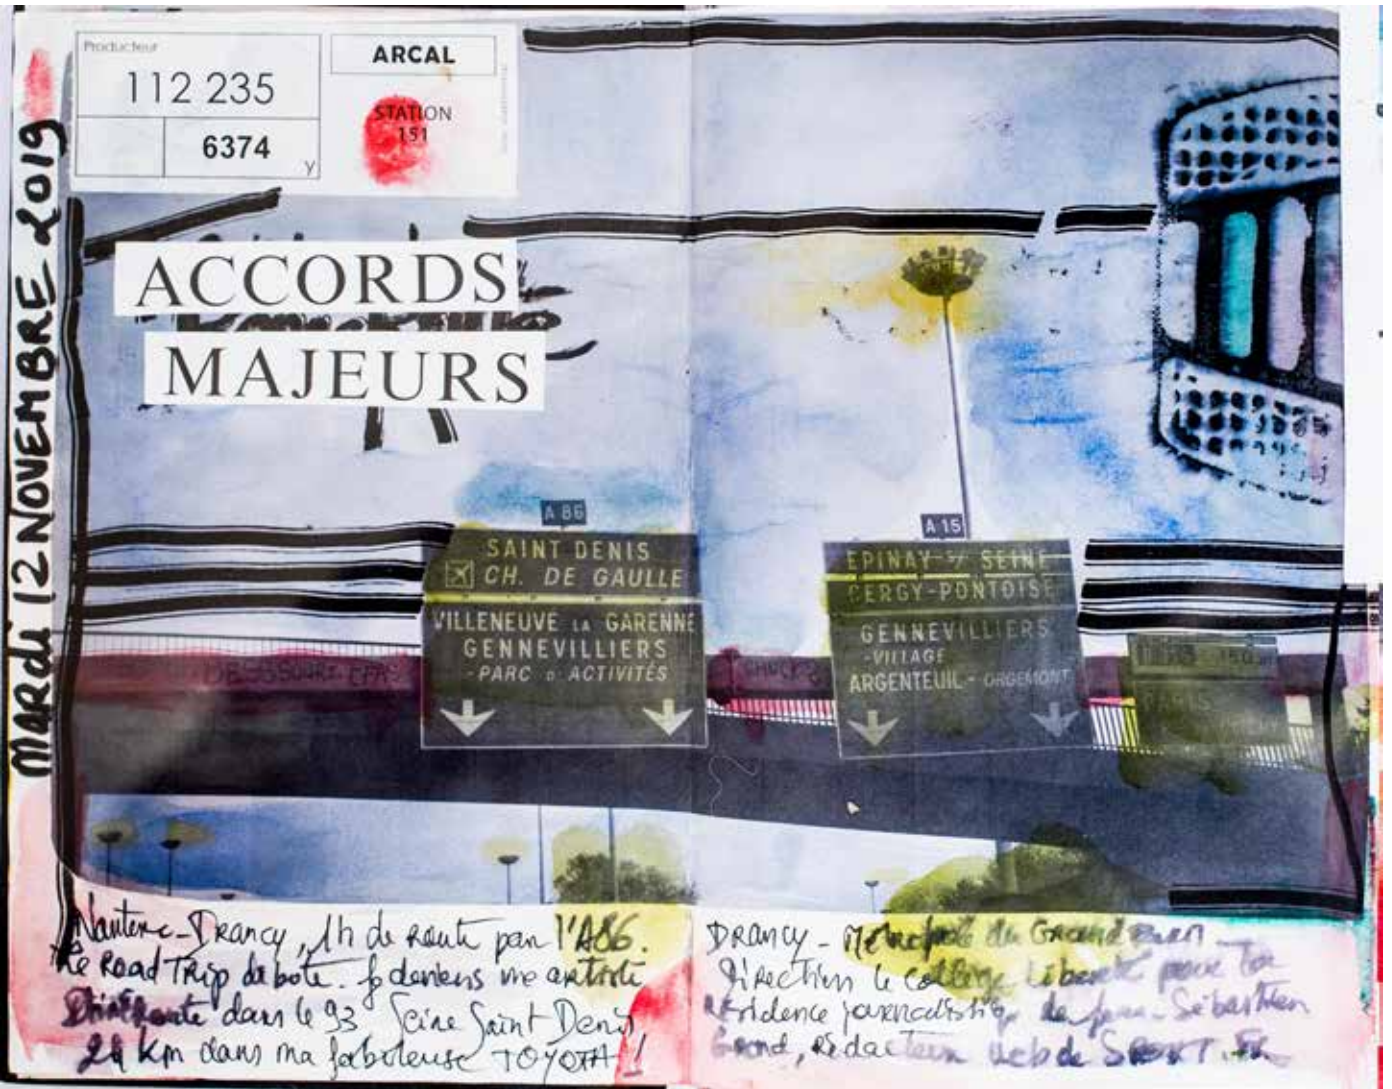 Producteur
112 235
6374
y
ARCAL
STATION
151
MARDI 12 NOVEMBRE 2019
ACCORDS
MAJEURS
A 86
SAINT DENIS
CH. DE GAULLE
VILLENEUVE LA GARENNE
GENNEVILLIERS
-PARC D'ACTIVITÉS
A 15
EPINAY S/ SEINE
CERGY-PONTOISE
GENNEVILLIERS
-VILLAGE
ARGENTEUIL-ORGEMONT
Nanterre-Drancy, 1h de route par l'A86.
Le Road Trip débute. Je deviens une artiste
dans le 93 Seine Saint Denis
24 km dans ma fabuleuse TOYOTA!
DRancy - Métropole du Grand Paris
Direction le collège Liberté pour la
Résidence journalistique de Jean-Sébastien
Grond, rédacteur web de SPORT.FR